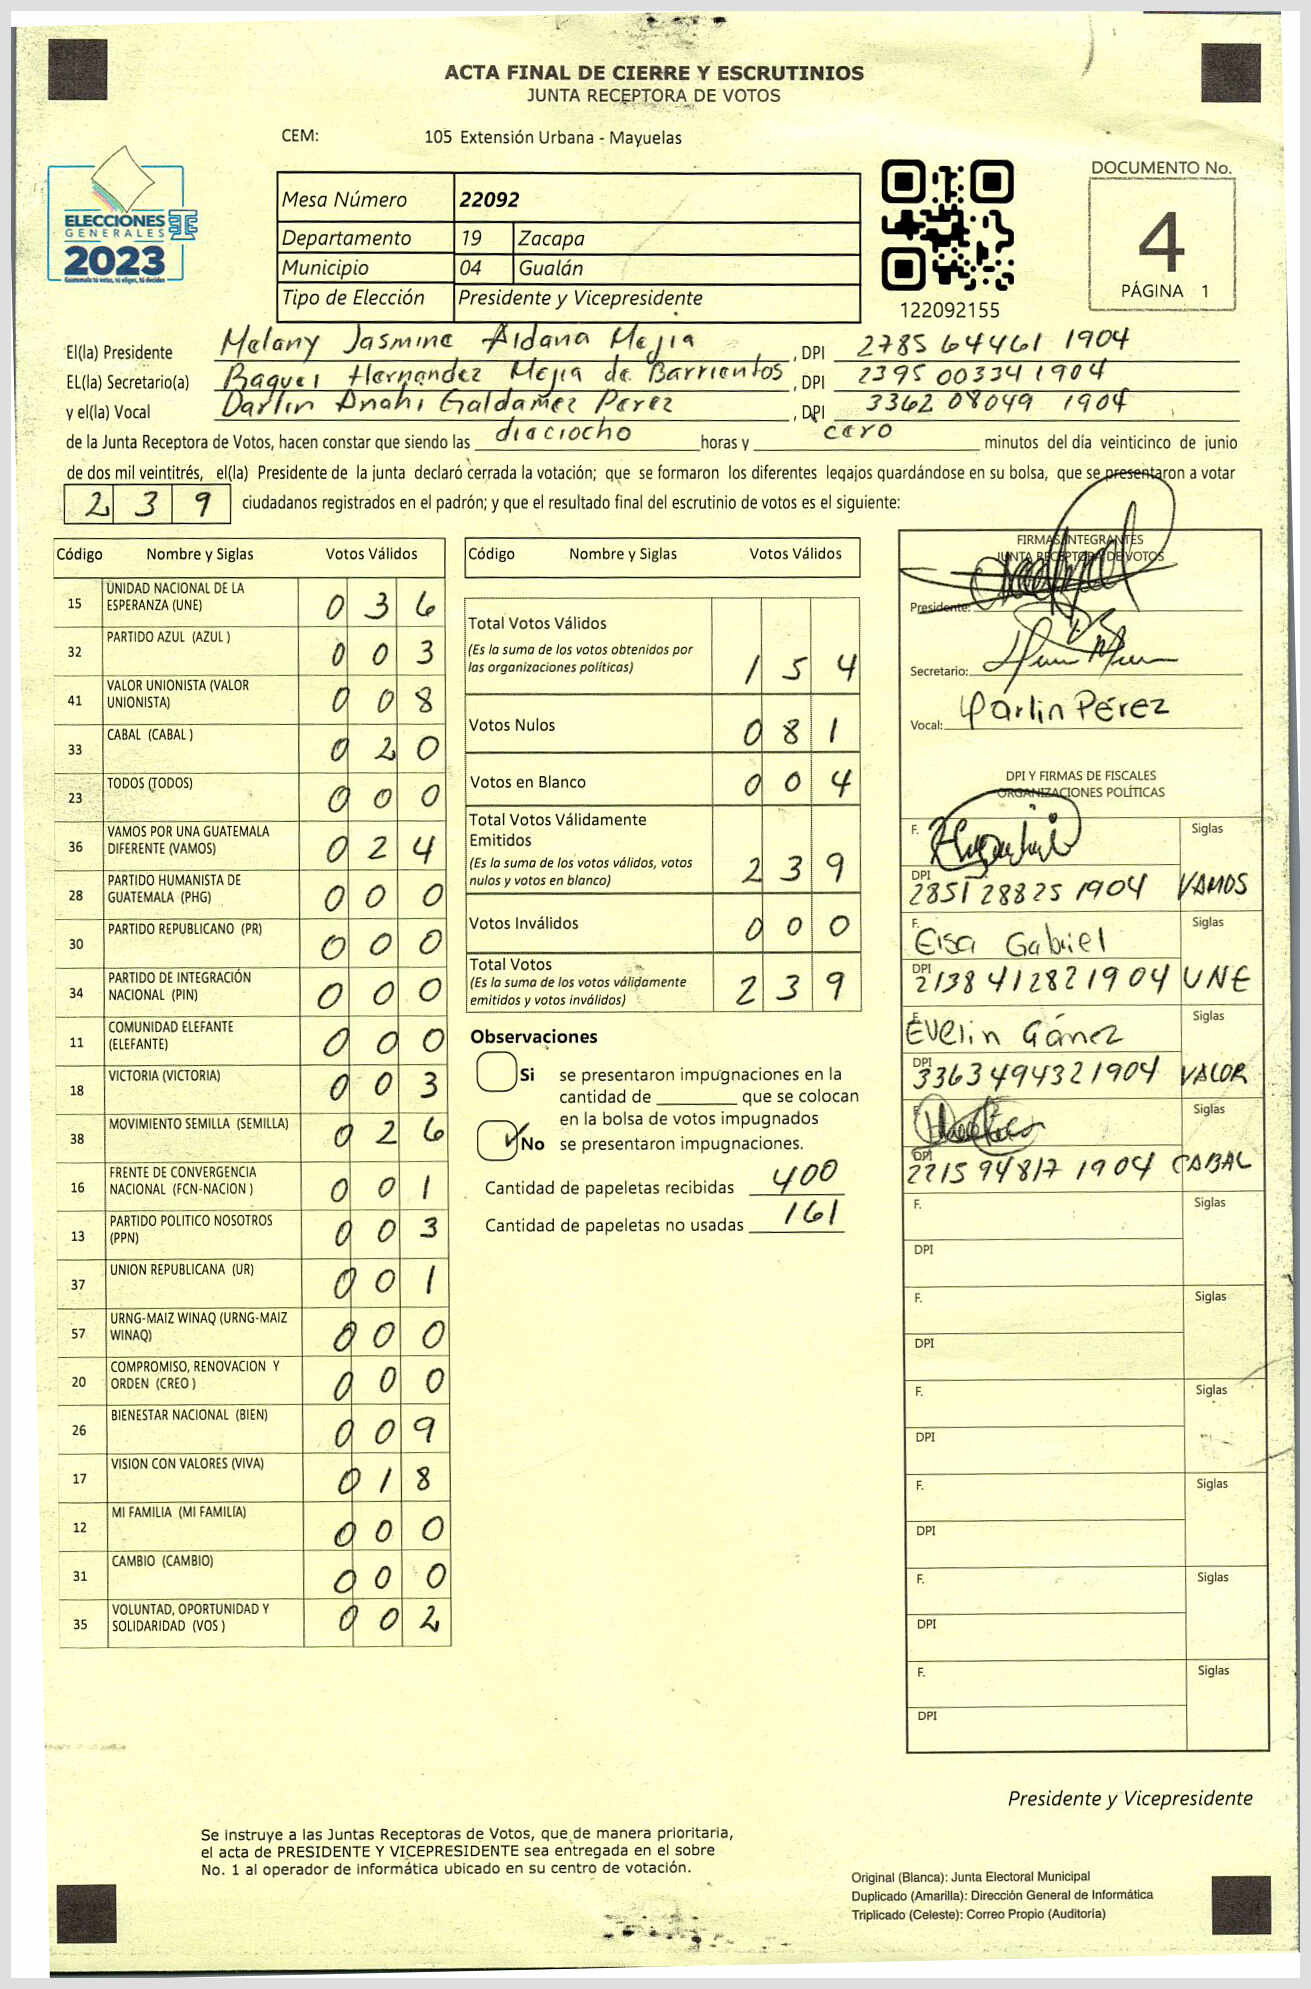 ACTA FINAL DE CIERRE Y ESCRUTINIOS
JUNTA RECEPTORA DE VOTOS
CEM: 105 Extensión Urbana - Mayuelas
ELECCIONES
GENERALES
2023
Guatemala tú votas, tú eliges, tú decides
Mesa Número 22092
Departamento 19 Zacapa
Municipio 04 Gualán
Tipo de Elección Presidente y Vicepresidente
122092155
DOCUMENTO No.
4
PÁGINA 1
El(la) Presidente Melany Jasmine Aldana Mejia, DPI 2785 64461 1904
EL(la) Secretario(a) Raquel Hernandez Mejia de Barrientos, DPI 2395 00334 1904
y el(la) Vocal Darlin Anahi Galdamez Perez, DPI 3362 08049 1904
de la Junta Receptora de Votos, hacen constar que siendo las dieciocho horas y cero minutos del día veinticinco de junio
de dos mil veintitrés, el(la) Presidente de la junta declaró cerrada la votación; que se formaron los diferentes legajos quardándose en su bolsa, que se presentaron a votar
239 ciudadanos registrados en el padrón; y que el resultado final del escrutinio de votos es el siguiente:
Código Nombre y Siglas Votos Válidos
15 UNIDAD NACIONAL DE LA ESPERANZA (UNE) 036
32 PARTIDO AZUL (AZUL ) 003
41 VALOR UNIONISTA (VALOR UNIONISTA) 008
33 CABAL (CABAL ) 020
23 TODOS (TODOS) 000
36 VAMOS POR UNA GUATEMALA DIFERENTE (VAMOS) 024
28 PARTIDO HUMANISTA DE GUATEMALA (PHG) 000
30 PARTIDO REPUBLICANO (PR) 000
34 PARTIDO DE INTEGRACIÓN NACIONAL (PIN) 000
11 COMUNIDAD ELEFANTE (ELEFANTE) 000
18 VICTORIA (VICTORIA) 003
38 MOVIMIENTO SEMILLA (SEMILLA) 026
16 FRENTE DE CONVERGENCIA NACIONAL (FCN-NACION ) 001
13 PARTIDO POLITICO NOSOTROS (PPN) 003
37 UNION REPUBLICANA (UR) 001
57 URNG-MAIZ WINAQ (URNG-MAIZ WINAQ) 000
20 COMPROMISO, RENOVACION Y ORDEN (CREO ) 000
26 BIENESTAR NACIONAL (BIEN) 009
17 VISION CON VALORES (VIVA) 018
12 MI FAMILIA (MI FAMILIA) 000
31 CAMBIO (CAMBIO) 000
35 VOLUNTAD, OPORTUNIDAD Y SOLIDARIDAD (VOS ) 002
Código Nombre y Siglas Votos Válidos
Total Votos Válidos
(Es la suma de los votos obtenidos por
las organizaciones políticas) 154
Votos Nulos 081
Votos en Blanco 004
Total Votos Válidamente
Emitidos
(Es la suma de los votos válidos, votos
nulos y votos en blanco) 239
Votos Inválidos 000
Total Votos
(Es la suma de los votos válidamente
emitidos y votos inválidos) 239
Observaciones
Si se presentaron impugnaciones en la
cantidad de ________ que se colocan
en la bolsa de votos impugnados
No se presentaron impugnaciones.
Cantidad de papeletas recibidas 400
Cantidad de papeletas no usadas 161
FIRMAS INTEGRANTES
JUNTA RECEPTORA DE VOTOS
Presidente:
Secretario:
Vocal: Darlin Pérez
DPI Y FIRMAS DE FISCALES
ORGANIZACIONES POLÍTICAS
F. Siglas
DPI 2851 28825 1904 VAMOS
F. Elsa Gabriel Siglas
DPI 2138 41282 1904 UNE
F. Evelin Gámez Siglas
DPI 3363 49432 1904 VALOR
F. Siglas
DPI 2215 94817 1904 CABAL
F. Siglas
DPI
F. Siglas
DPI
F. Siglas
DPI
F. Siglas
DPI
F. Siglas
DPI
F. Siglas
DPI
Presidente y Vicepresidente
Se instruye a las Juntas Receptoras de Votos, que de manera prioritaria,
el acta de PRESIDENTE Y VICEPRESIDENTE sea entregada en el sobre
No. 1 al operador de informática ubicado en su centro de votación.
Original (Blanca): Junta Electoral Municipal
Duplicado (Amarilla): Dirección General de Informática
Triplicado (Celeste): Correo Propio (Auditoría)